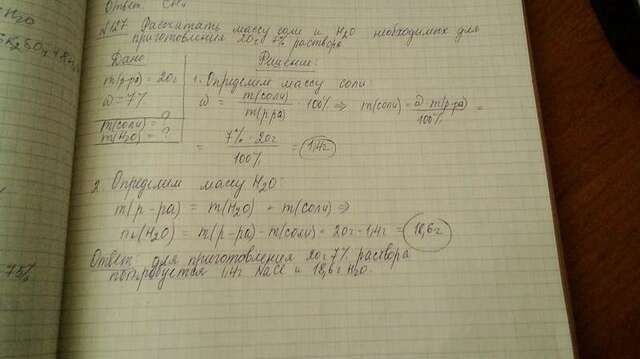 Ответ: CH₄
№127 Рассчитать массу соли и H₂O необходимых для
приготовления 20г 7% раствора
Дано
m(р-ра) = 20г
ω = 7%
m(соли) = ?
m(H₂O) = ?
Решение:
1. Определим массу соли:
ω = m(соли)/m(р-ра) · 100% ⇒ m(соли) = ω · m(р-ра)/100% =
= 7% · 20г/100% = 1,4г
2. Определим массу H₂O:
m(р-ра) = m(H₂O) + m(соли) ⇒
m(H₂O) = m(р-ра) - m(соли) = 20г - 1,4г = 18,6г
Ответ: для приготовления 20г 7% раствора
потребуется 1,4г NaCl и 18,6г H₂O.
75%